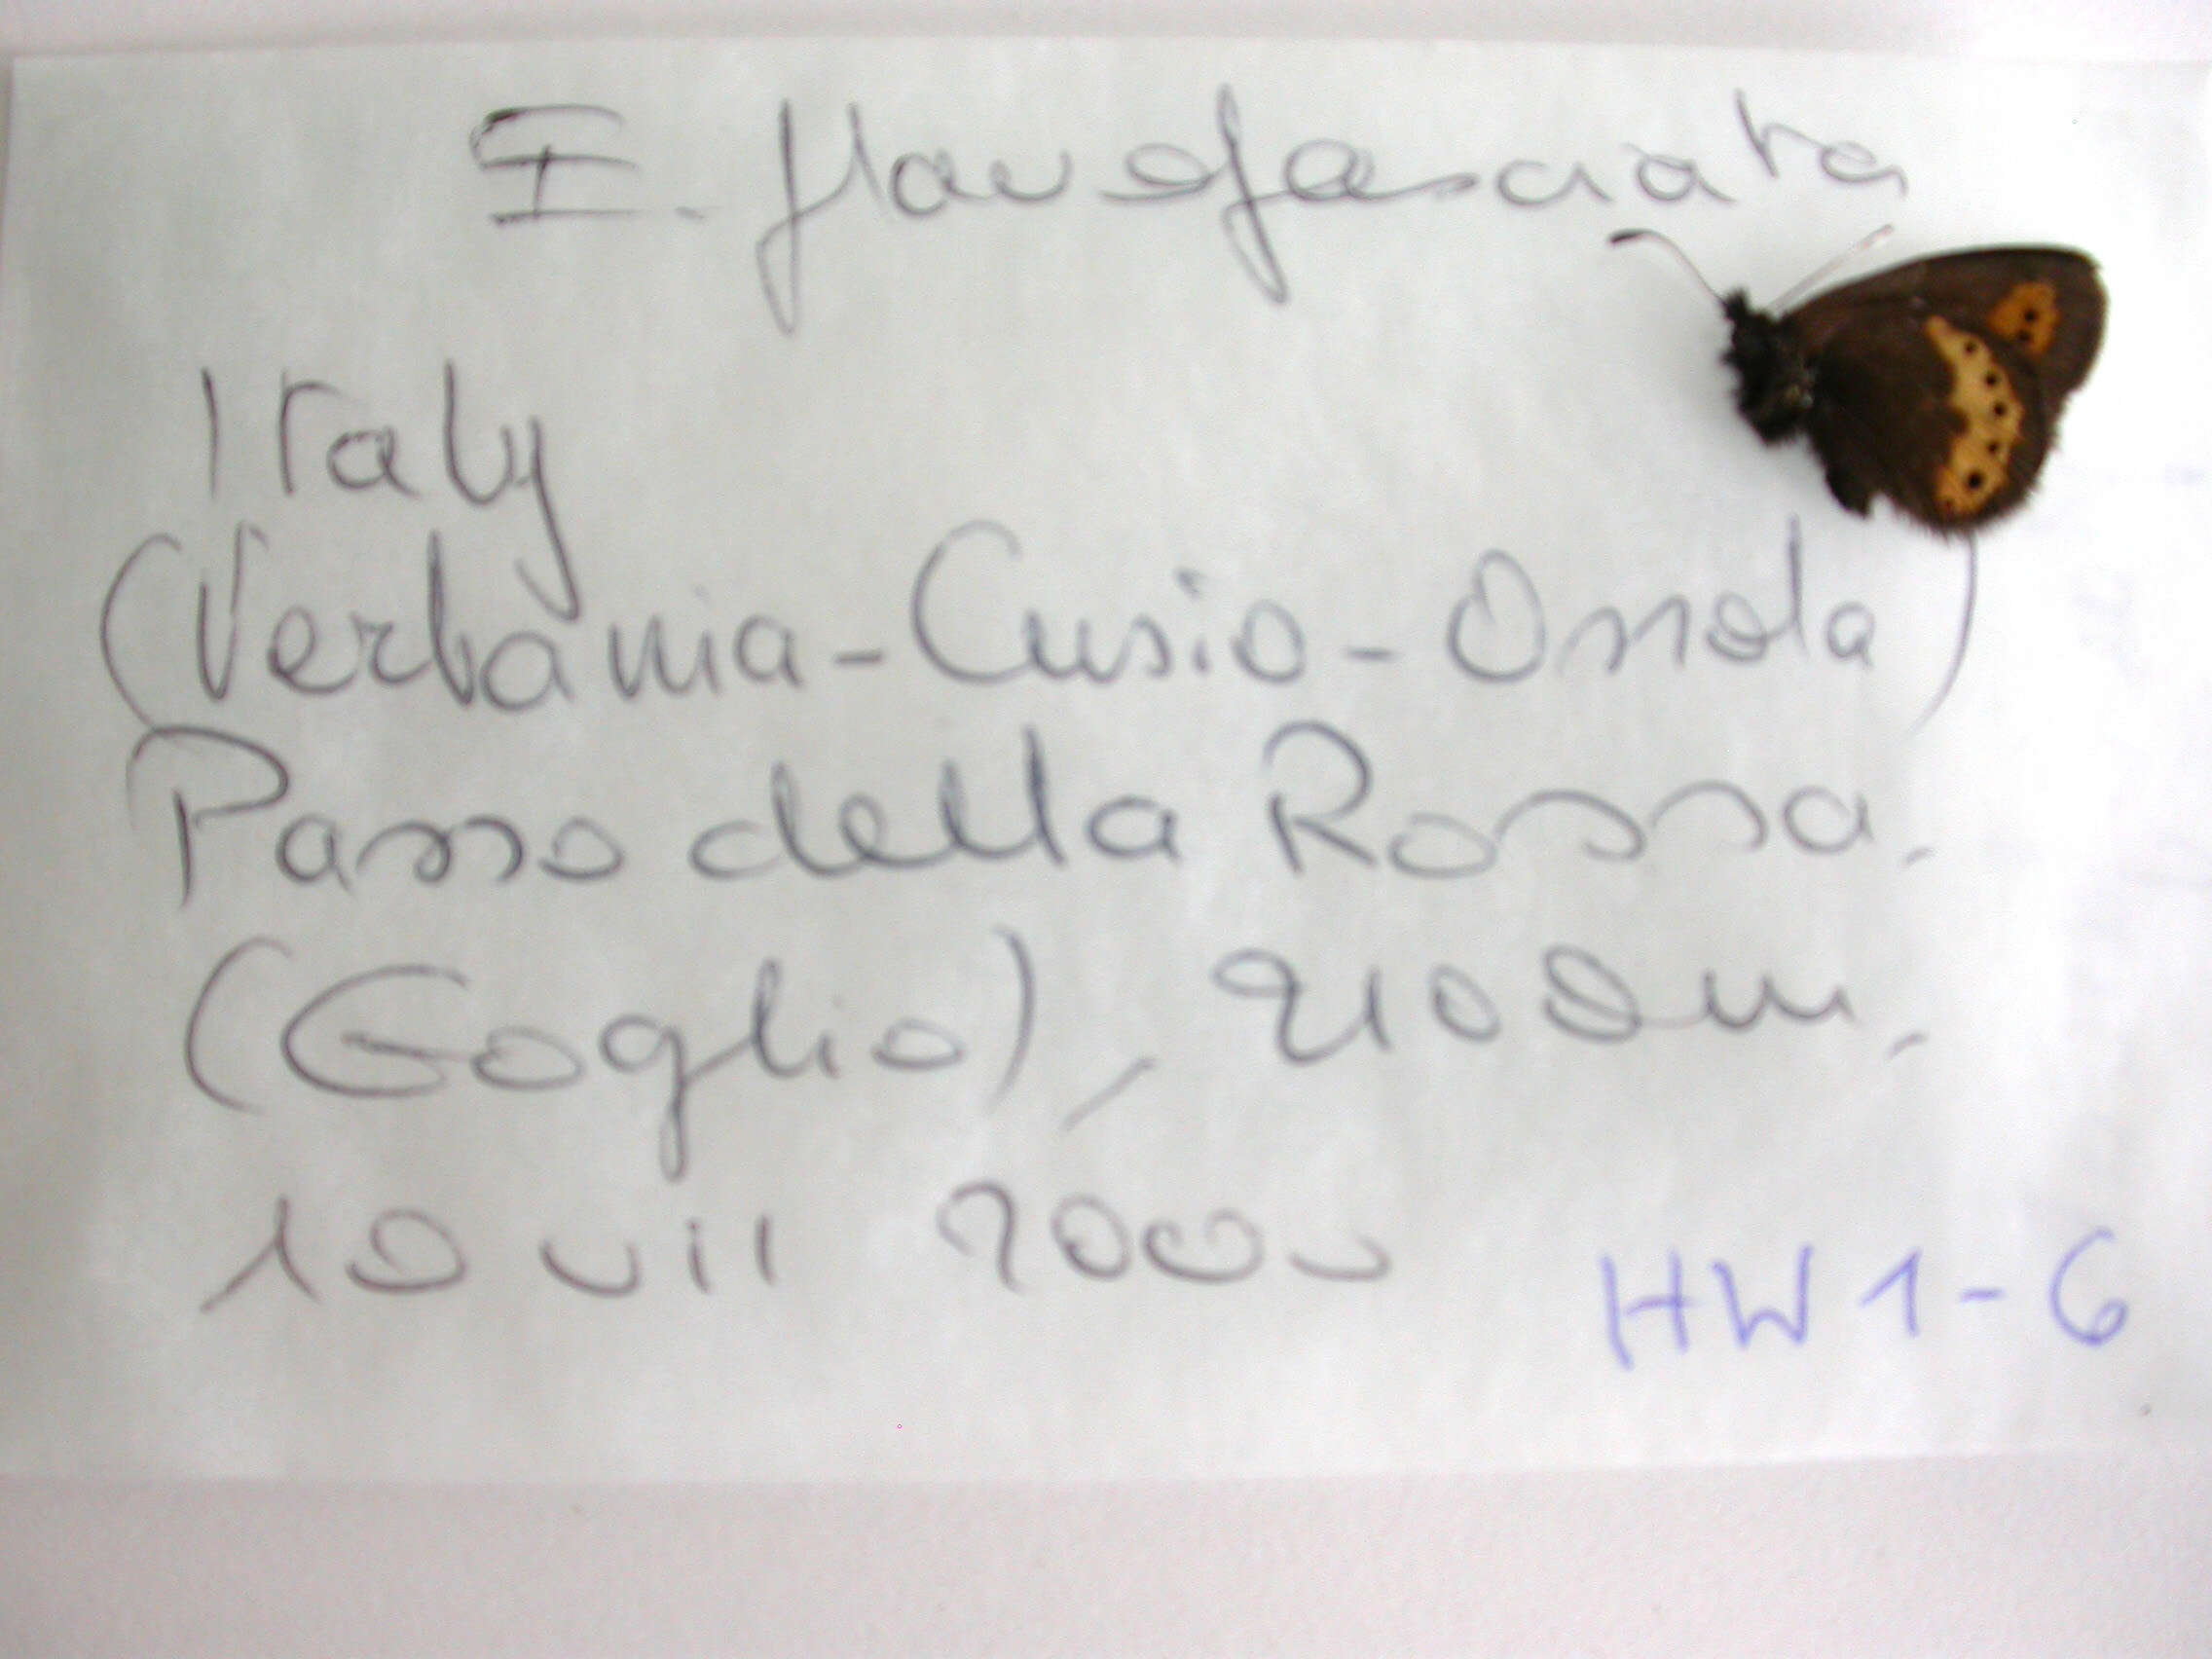 E. flavofasciata
Italy
(Verbania-Cusio-Ossola)
Passo della Rossa.
(Goglio), 2100 m.
10 vii 2000
HW 1-6